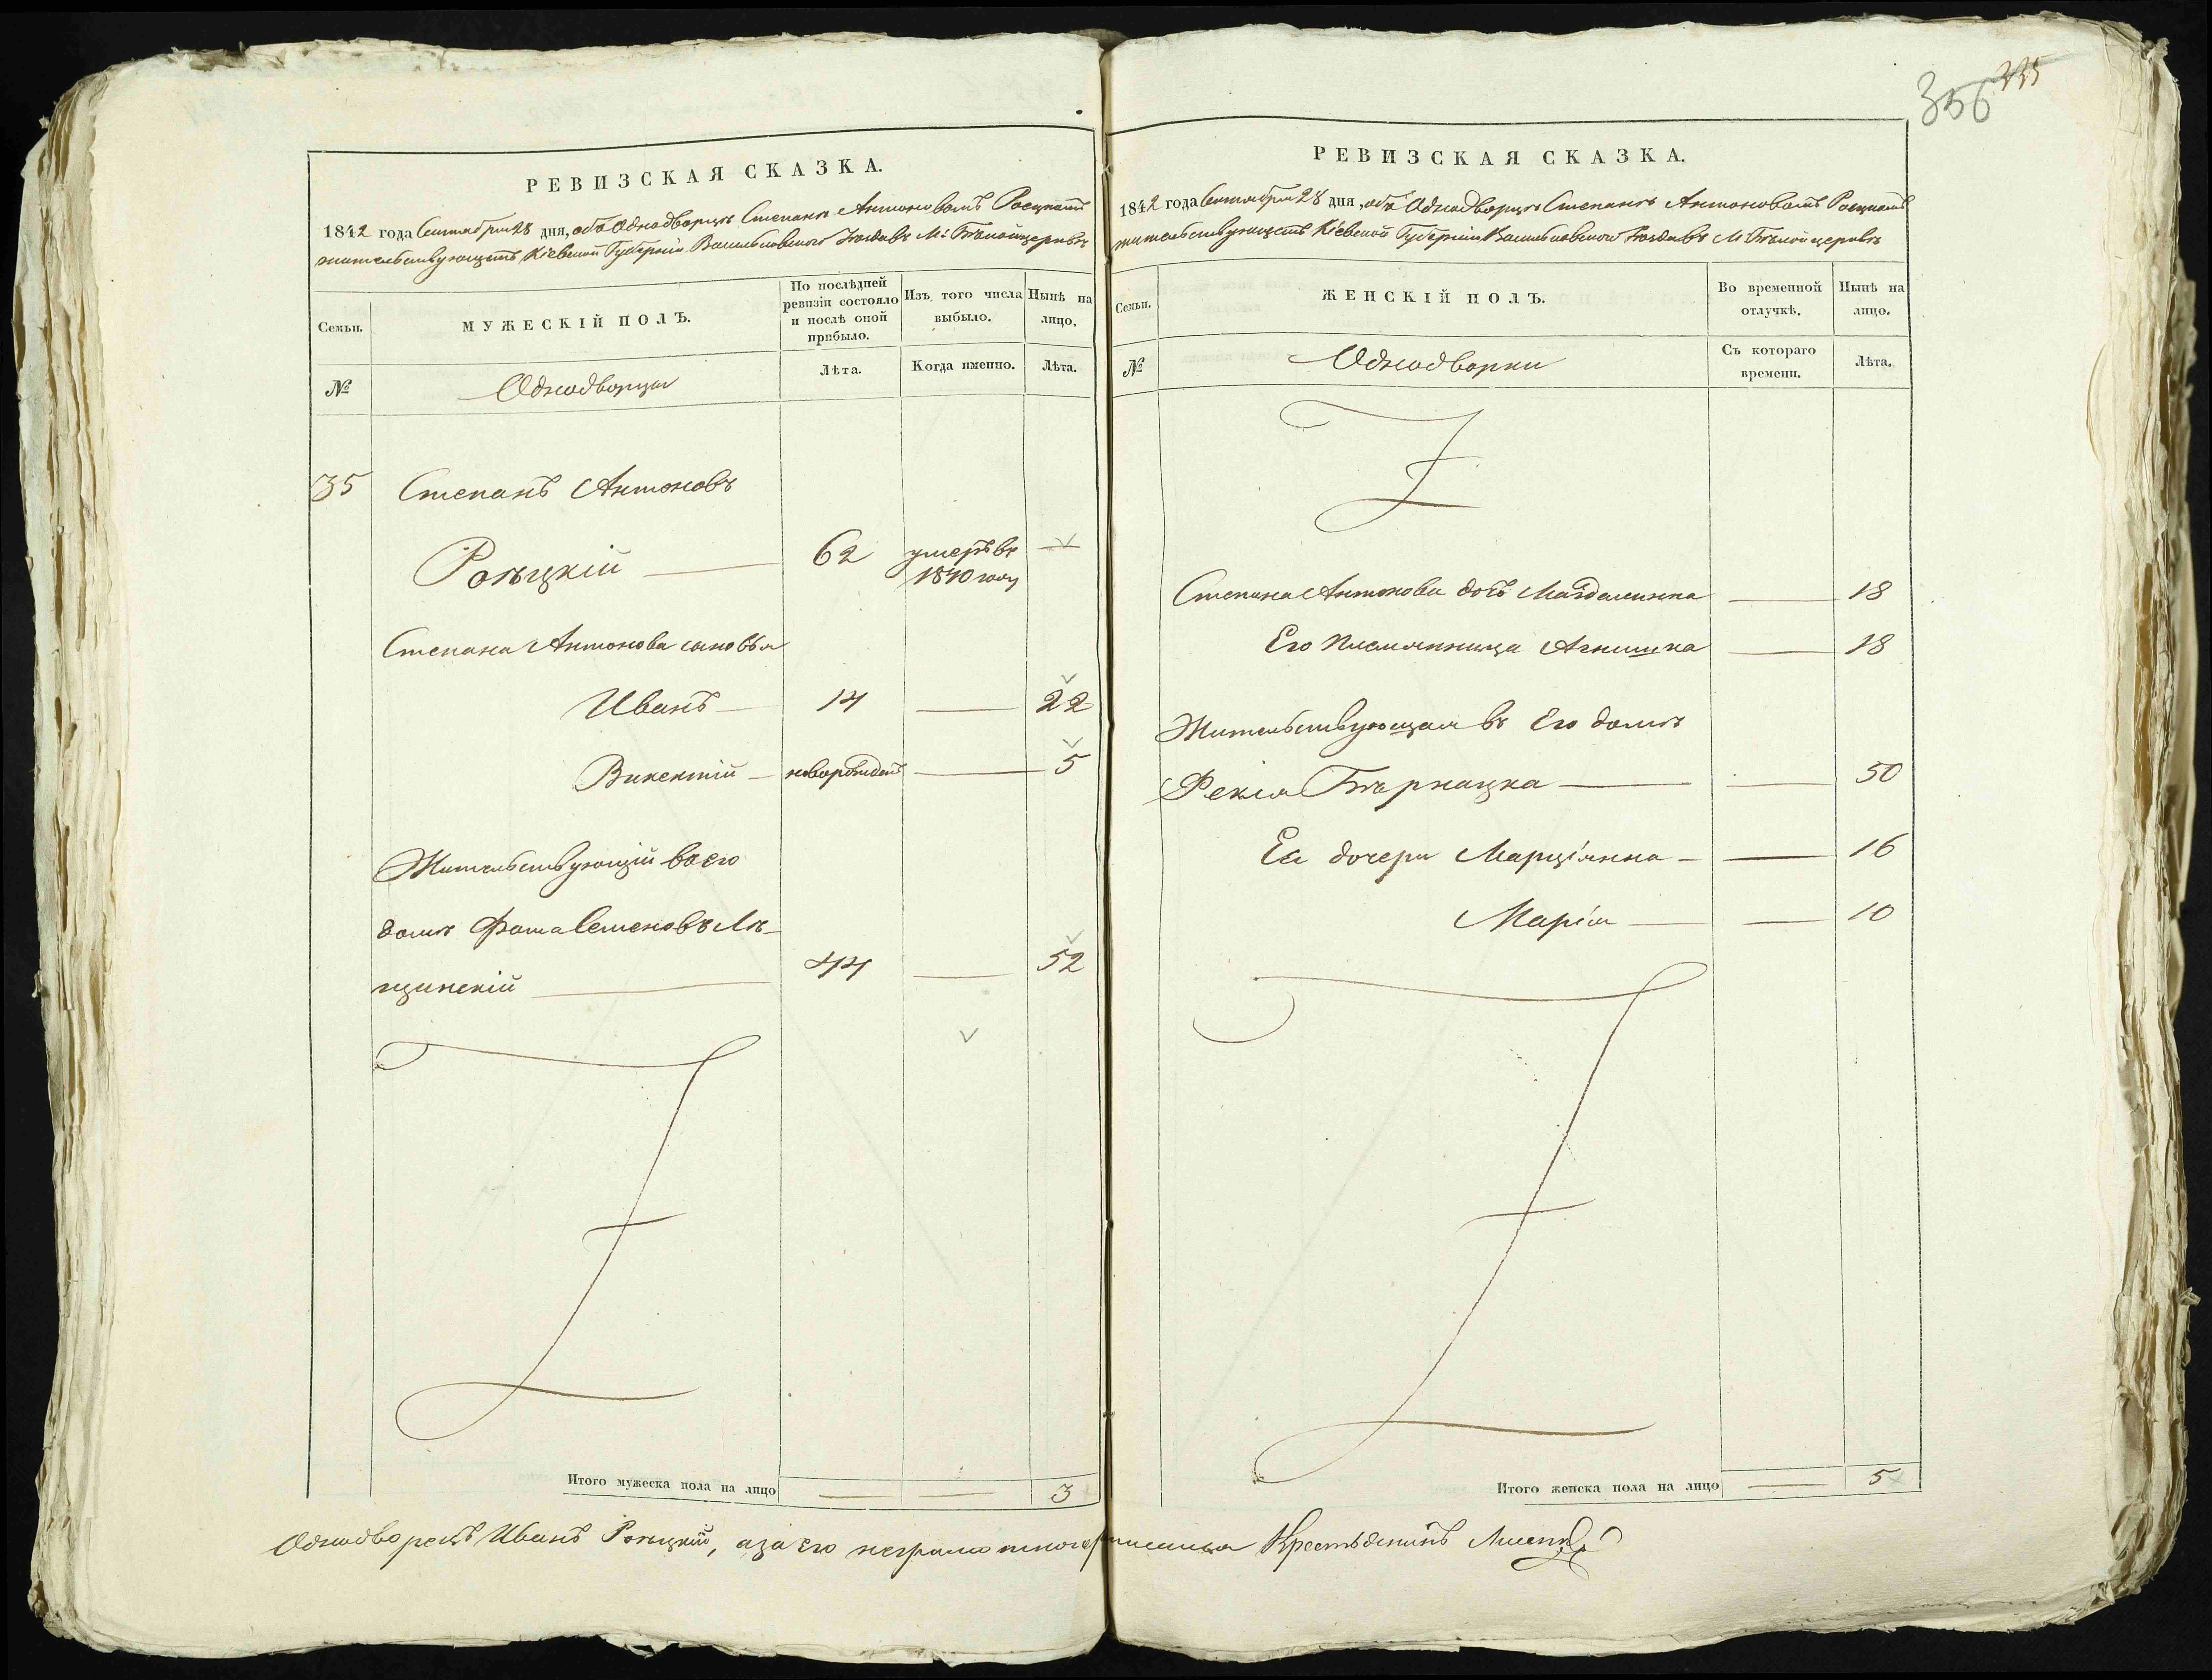 356 335
РЕВИЗСКАЯ СКАЗКА.
1842 года Сентября 28 дня, объ Однодворцѣ Степанѣ Антоновомъ
жительствующемъ Кіевской Губерніи Васильковского Уѣзда въ М: Бѣлойцерквѣ
Семьи.
МУЖЕСКІЙ ПОЛЪ.
По послѣдней ревизіи состояло и послѣ оной прибыло.
Изъ того числа выбыло.
Нынѣ на лицо.
№
Однодворцы
Лѣта.
Когда именно.
Лѣта.
35 Степанъ Антоновъ
62 умеръ въ 1840 году
Степана Антонова сыновья
Иванъ 14 22
Викентій новорожден 5
Жительствующій въ его
домѣ Фома Семеновъ Лѣ-
щинскій 44 52
Итого мужеска пола на лицо 3
РЕВИЗСКАЯ СКАЗКА.
1842 года Сентября 28 дня, объ Однодворцѣ Степанѣ Антоновомъ
жительствующемъ Кіевской Губерніи Васильковского Уѣзда въ М Бѣлойцерквѣ
Семьи.
ЖЕНСКІЙ ПОЛЪ.
Во временной отлучкѣ.
Нынѣ на лицо.
№
Однодворки
Съ котораго времени.
Лѣта.
Степана Антонова дочь Магдалинна 18
Его племянница Агнишка 18
Жительствующая въ Его домѣ
Бѣрнацка 50
Ея дочери Марціянна 16
Марія 10
Итого женска пола на лицо 5
Однодворецъ Иванъ а за его неграмотного